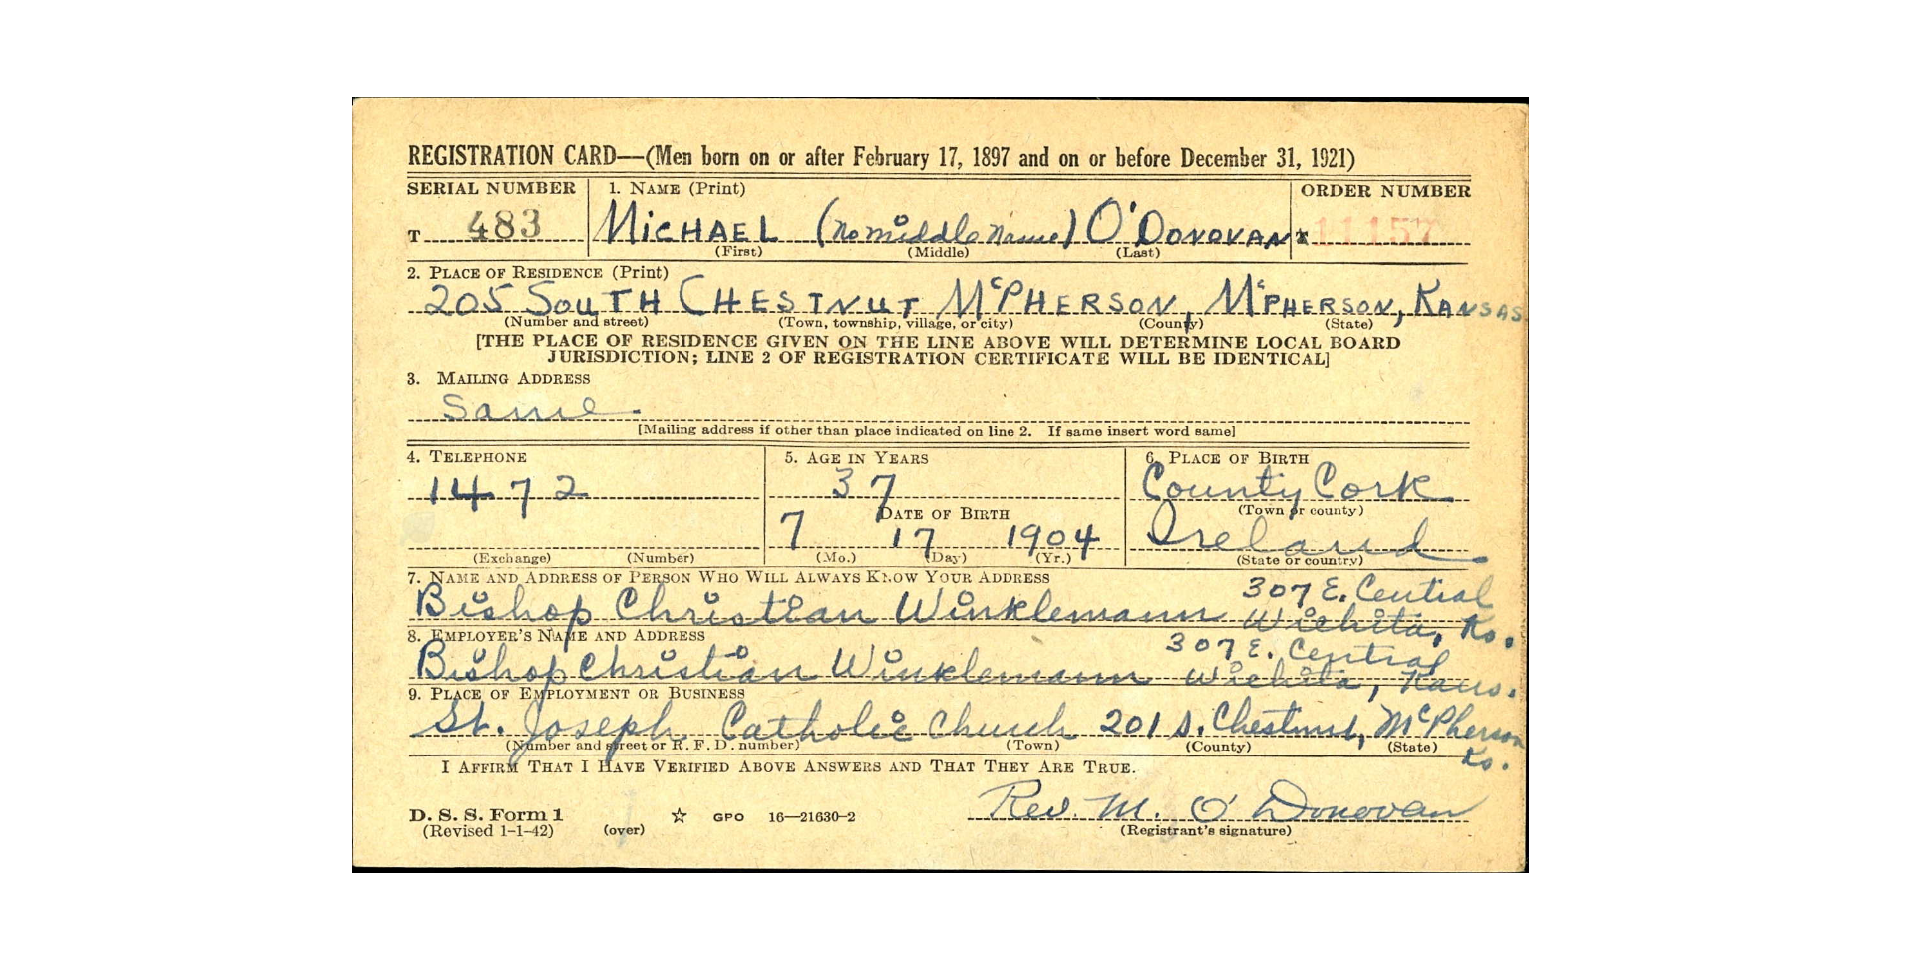 REGISTRATION CARD—(Men born on or after February 17, 1897 and on or before December 31, 1921)
SERIAL NUMBER 1. NAME (Print) ORDER NUMBER
T 483 MICHAEL (No middle name) O'DONOVAN T 11157
(First) (Middle) (Last)
2. PLACE OF RESIDENCE (Print)
205 SOUTH CHESTNUT McPHERSON, McPHERSON, KANSAS
(Number and street) (Town, township, village, or city) (County) (State)
[THE PLACE OF RESIDENCE GIVEN ON THE LINE ABOVE WILL DETERMINE LOCAL BOARD
JURISDICTION; LINE 2 OF REGISTRATION CERTIFICATE WILL BE IDENTICAL]
3. MAILING ADDRESS
Same
[Mailing address if other than place indicated on line 2. If same insert word same]
4. TELEPHONE 5. AGE IN YEARS 6. PLACE OF BIRTH
1472 37 County Cork
DATE OF BIRTH (Town or county)
7 17 1904 Ireland
(Exchange) (Number) (Mo.) (Day) (Yr.) (State or country)
7. NAME AND ADDRESS OF PERSON WHO WILL ALWAYS KNOW YOUR ADDRESS
307 E. Central
Bishop Christian Winklemann Wichita, Ks.
8. EMPLOYER'S NAME AND ADDRESS
307 E. Central
Bishop Christian Winklemann Wichita, Kans.
9. PLACE OF EMPLOYMENT OR BUSINESS
St. Joseph Catholic Church 201 S. Chestnut, McPherson
(Number and street or R. F. D. number) (Town) (County) (State)
Ks.
I AFFIRM THAT I HAVE VERIFIED ABOVE ANSWERS AND THAT THEY ARE TRUE.
Rev. M. O'Donovan
D. S. S. Form 1 GPO 16—21630-2
(Revised 1-1-42) (over) (Registrant's signature)